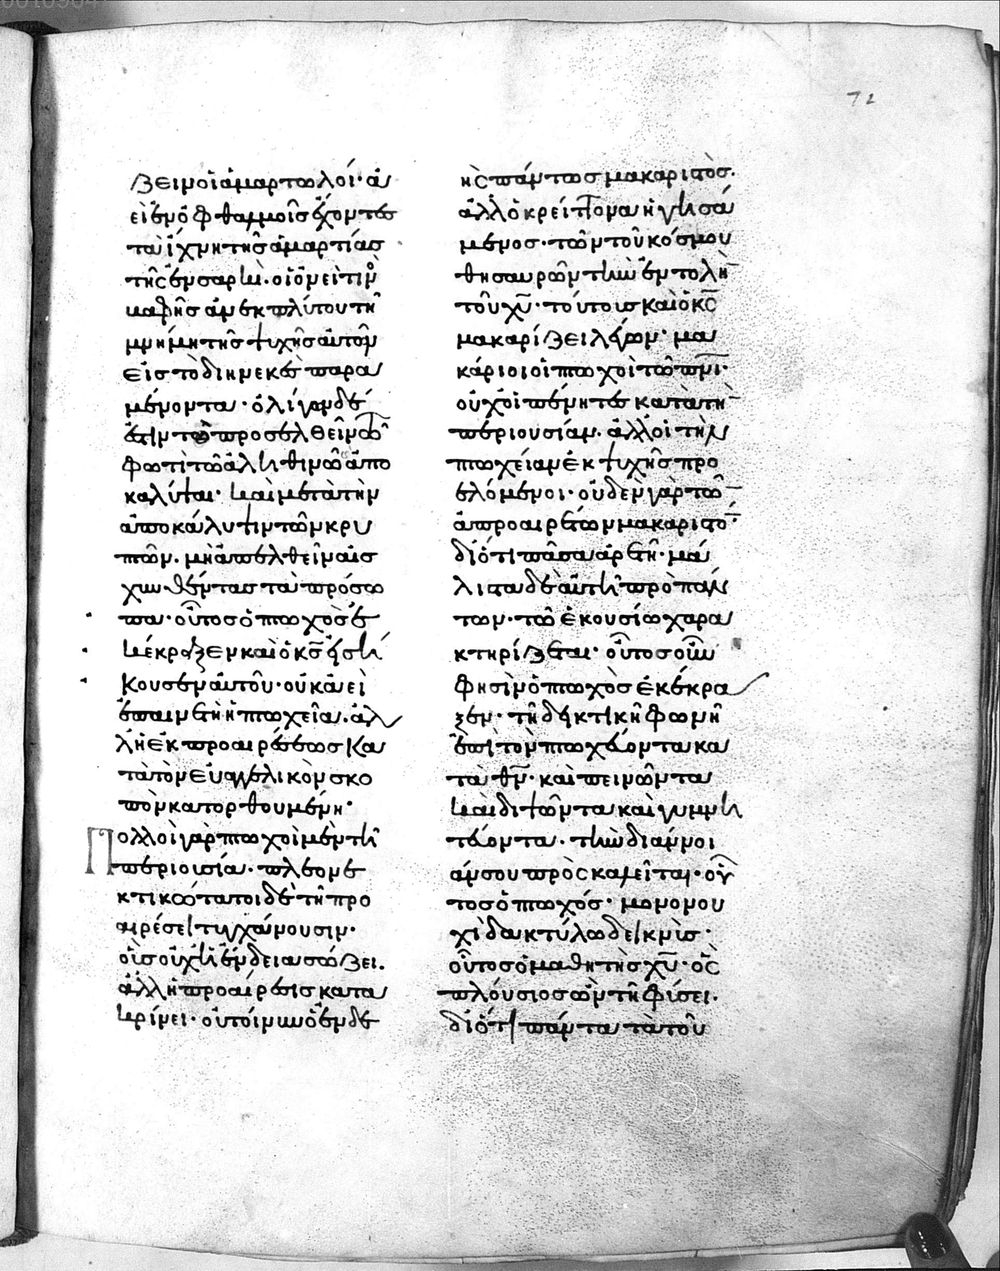 72
ζειν οἱ ἁμαρτωλοί· ἀ
εὶ ἐν ὀφθαλμοῖς ἔχοντες
τὰ ἴχνη τῆς ἁμαρτίας
τῆς ἐν σαρκὶ· οἱονεί τιν
βαφῆς ἀνεκπλύτου τῆ
μνήμη τῆς ψυχῆς αὐτῶν
εἰς τὸ διηνεκὲς παρα
μένοντα· ὀλίγων δέ
ἐστιν τὸ προσελθεῖν τῶ
φωτὶ τῶ ἀληθινῶ ἀπο
καλύψαι· καὶ μετὰ τὴν
ἀποκάλυψιν τῶν κρυ
πτῶν· μὴ ἀπελθεῖν αἰσ
χυνθέντας τὰ πρόσω
πα· οὗτος ὁ πτωχὸς ἐ
κέκραξεν καὶ ὁ κς εἰσή
κουσεν αὐτοῦ· οὐκ ἀεὶ
ἐπαινετὴ ἡ πτωχεία· ἀλ
λ' ἡ ἐκ προαιρέσεως κα
τὰ τὸν εὐαγγελικὸν σκο
πὸν κατορθουμένη·
Πολλοὶ γὰρ πτωχοὶ μὲν τῆ
περιουσία· πλεονε
κτικώτατοι δὲ τῆ προ
αιρέσει τυγχάνουσιν·
οἷς οὐχ ἡ ἔνδεια σώζει·
ἀλλ' ἡ προαίρεσις κατα
κρίνει· οὐ τοίνυν ὁ ἐνδε
ὴς πάντως μακαριστός·
ἀλλ' ὁ κρείττονα ἡγησά
μενος· τῶν τοῦ κόσμου
θησαυρῶν τὴν ἐντολὴν
τοῦ χυ· τούτους καὶ ὁ κς
μακαρίζει λέγων· μα
κάριοι οἱ πτωχοὶ τῶ πνι·
οὐχ οἱ πένητες κατὰ τὴν
περιουσίαν· ἀλλ' οἱ τὴν
πτωχείαν ἐκ ψυχῆς προ
ελόμενοι· οὐδὲν γὰρ τῶν
ἀπροαιρέτων μακαριστόν·
διότι πᾶσα ἀρετή· μά
λιστα δὲ αὕτη πρὸ πάν
των· τῶ ἑκουσίω χαρα
κτηρίζεται· οὗτος οὖν
φησὶν ὁ πτωχὸς ἐκέκρα
ξεν· τῆ δεικτικῆ φωνῆ
ἐπὶ τὸν πτωχεύοντα κα
τὰ θν· καὶ πεινῶντα
καὶ διψῶντα καὶ γυμνη
τεύοντα· τὴν διάνοι
άν σου προσκαλεῖται· οὗ
τος ὁ πτωχός· μονονου
χὶ δακτύλω δεικνύς·
οὗτος ὁ μαθητὴς χυ· ὃς
πλούσιος ὢν τῆ φύσει·
διότι πάντα τὰ τοῦ